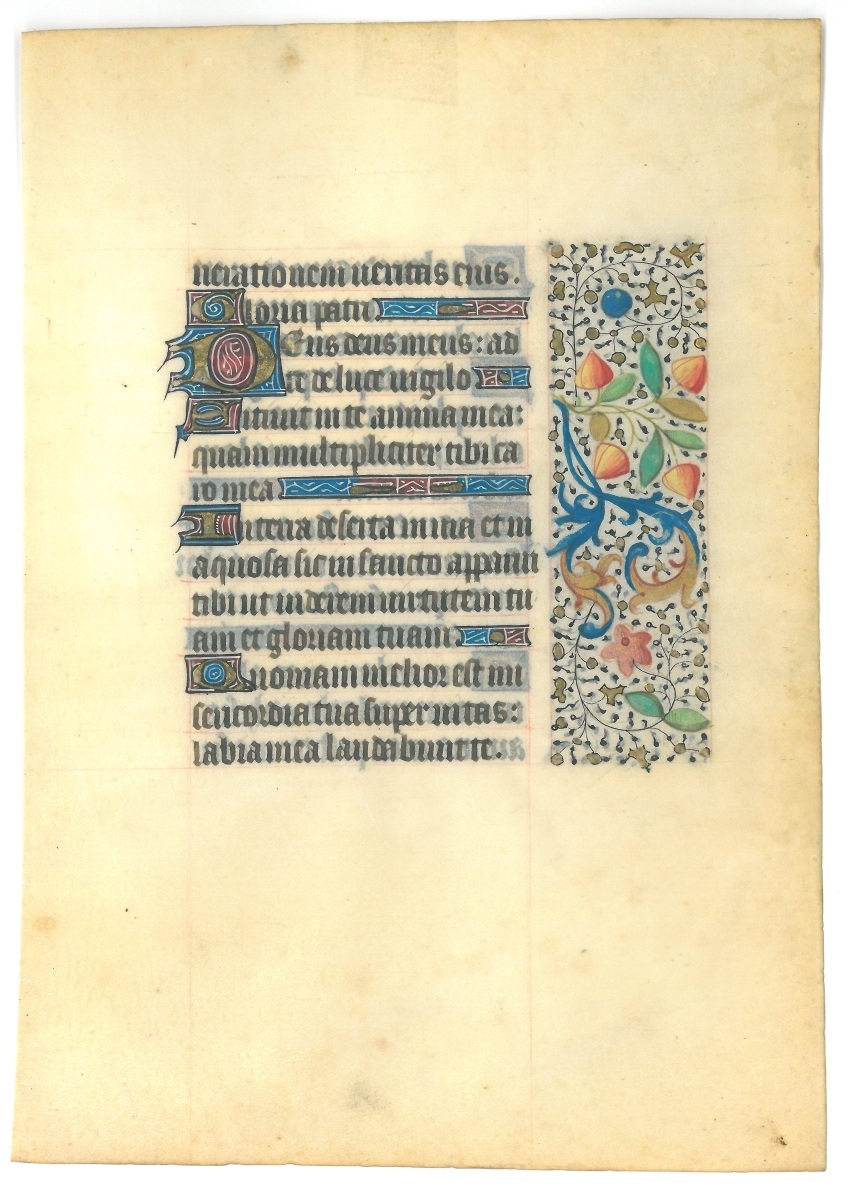 neratio nem ueritas eius.
Gloria patri
Deus deus meus: ad
te de luce uigilo
Sitiuit in te anima mea:
quam multipliciter tibi ca
ro mea
In terra deserta in uia et in
aquosa sic in sancto apparui
tibi ut uiderem uirtutem tu
am et gloriam tuam
Quoniam melior est mi
sericordia tua super uitas:
labia mea laudabunt te.